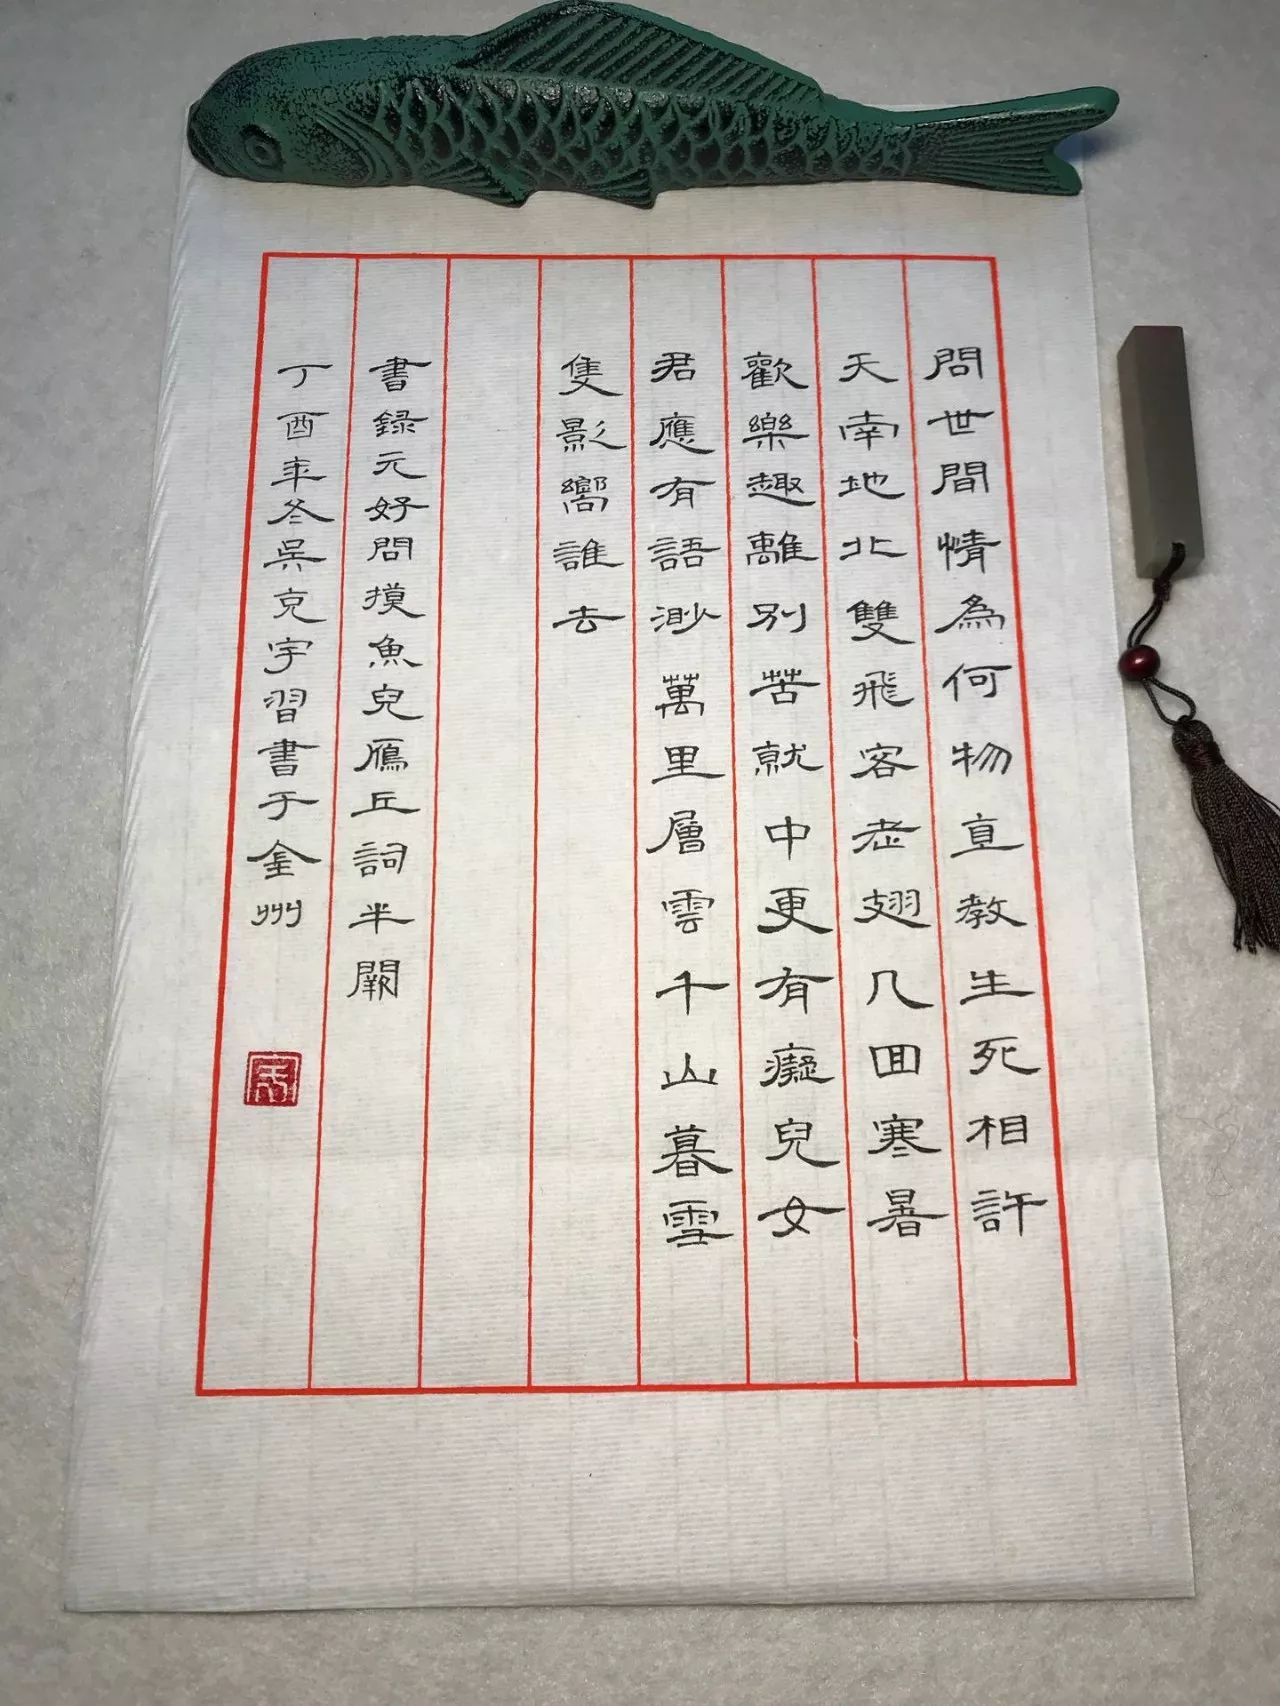 問世間情為何物直教生死相許
天南地北雙飛客老翅几回寒暑
歡樂趣離別苦就中更有癡兒女
君應有語渺萬里層雲千山暮雪
隻影嚮誰去
書録元好問摸魚兒雁丘詞半闋
丁酉年冬吳克宇習書于金州